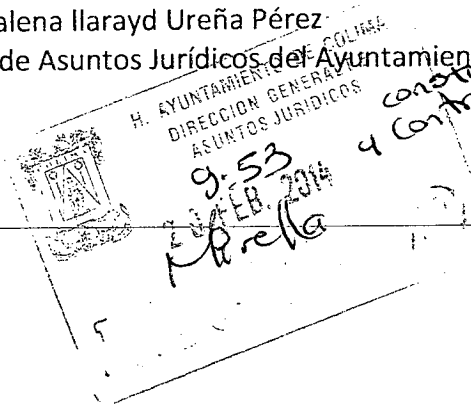 alena Ilarayd Ureña Pérez
de Asuntos Jurídicos del Ayuntamien
H. AYUNTAMIENTO DE COLIMA
DIRECCION GENERAL
ASUNTOS JURIDICOS
9:53
20 FEB. 2014
Mirella
y